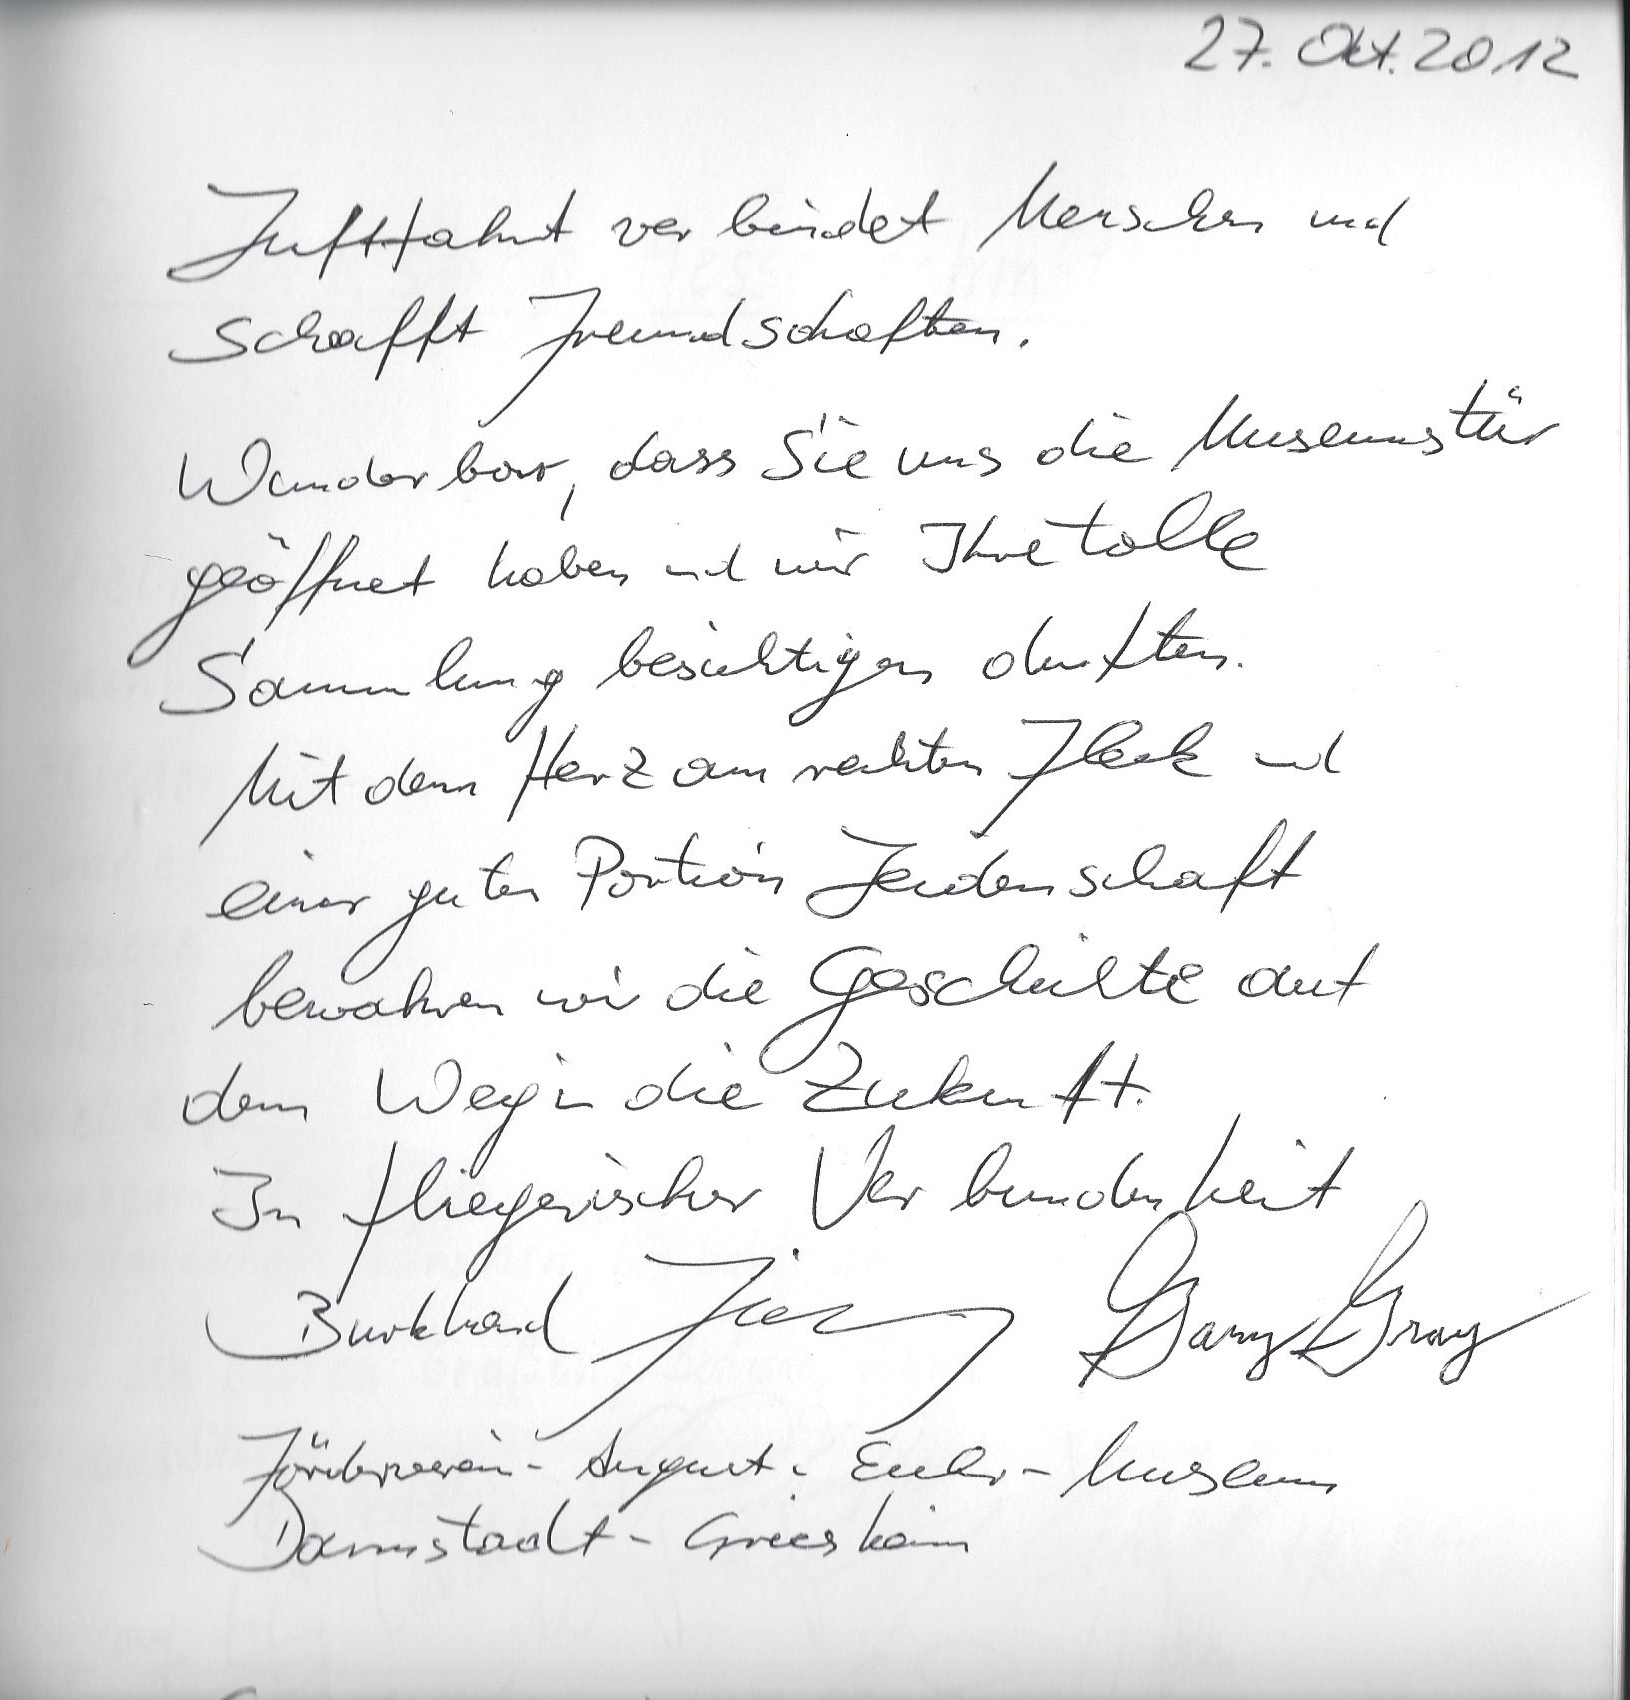 27. Okt. 2012
Luftfahrt verbindet Menschen und
schafft Freundschaften.
Wunderbar, dass Sie uns die Museumstür
geöffnet haben und wir Ihre tolle
Sammlung besichtigen durften.
Mit dem Herz am rechten Fleck und
einer guten Portion Leidenschaft
bewahren wir die Geschichte auf
dem Weg in die Zukunft.
In fliegerischer Verbundenheit
Burkhard Gary Gray
Förderverein - August - Euler - Museum
Darmstadt - Griesheim